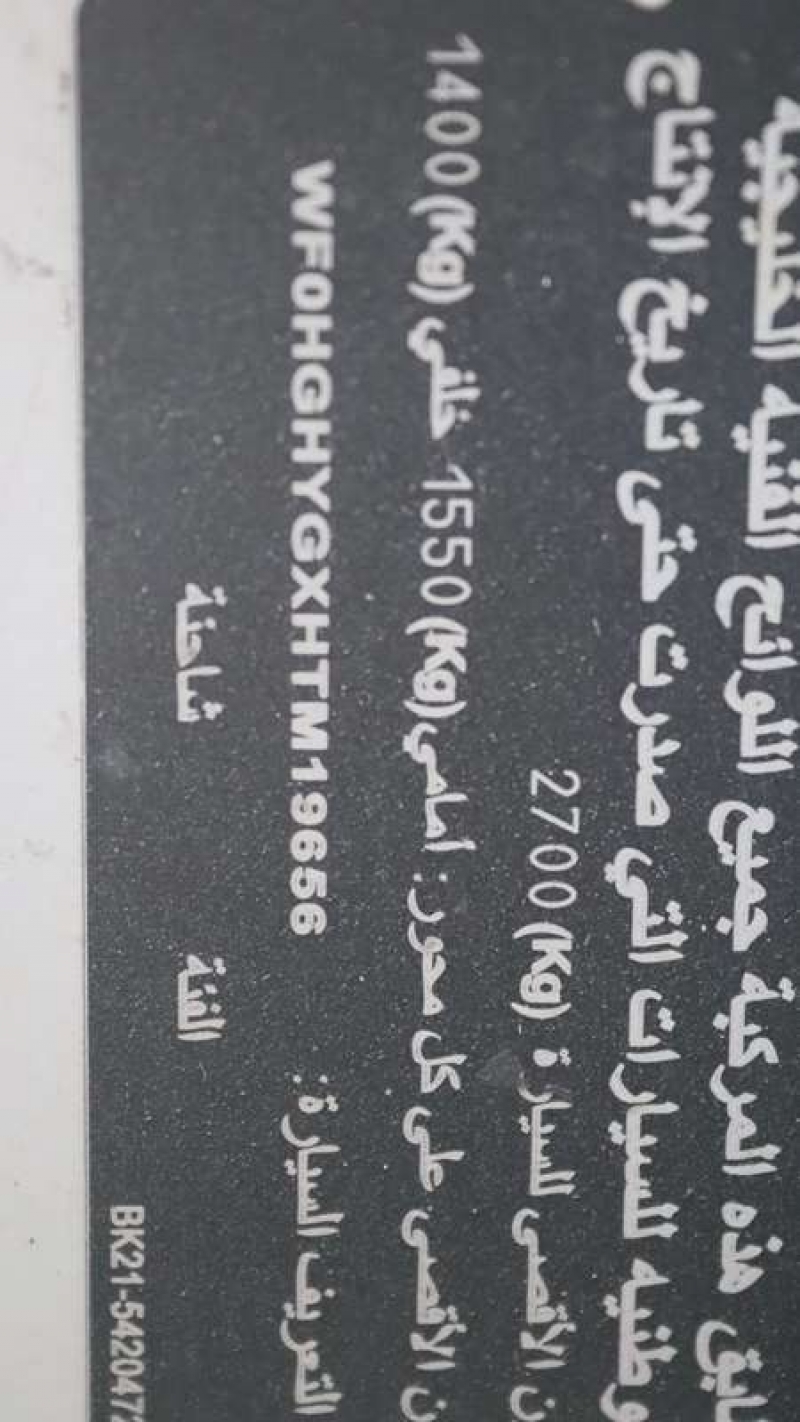 هذه المركبة جميع اللوائح الفنيه الخليجيه
وطنيه للسيارات التي صدرت حتى تاريخ الإنتاج
ن الأقصى للسيارة 2700(Kg)
ن الأقصى على كل محور: أمامي 1550(Kg) خلفى 1400(Kg)
التعريف السيارة: WF0HGHYGXHTM19656
الفئة شاحنة
BK21-542047